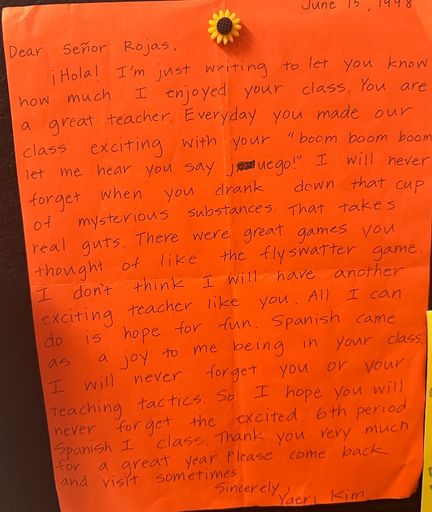 June 15, 1998
Dear Señor Rojas,
¡Hola! I'm just writing to let you know
how much I enjoyed your class. You are
a great teacher. Everyday you made our
class exciting with your "boom boom boom
let me hear you say juego!" I will never
forget when you drank down that cup
of mysterious substances. That takes
real guts. There were great games you
thought of like the flyswatter game.
I don't think I will have another
exciting teacher like you. All I can
do is hope for fun. Spanish came
as a joy to me being in your class.
I will never forget you or your
teaching tactics. So I hope you will
never forget the excited 6th period
Spanish I class. Thank you very much
for a great year. Please come back
and visit sometimes.
Sincerely,
Yaeri Kim